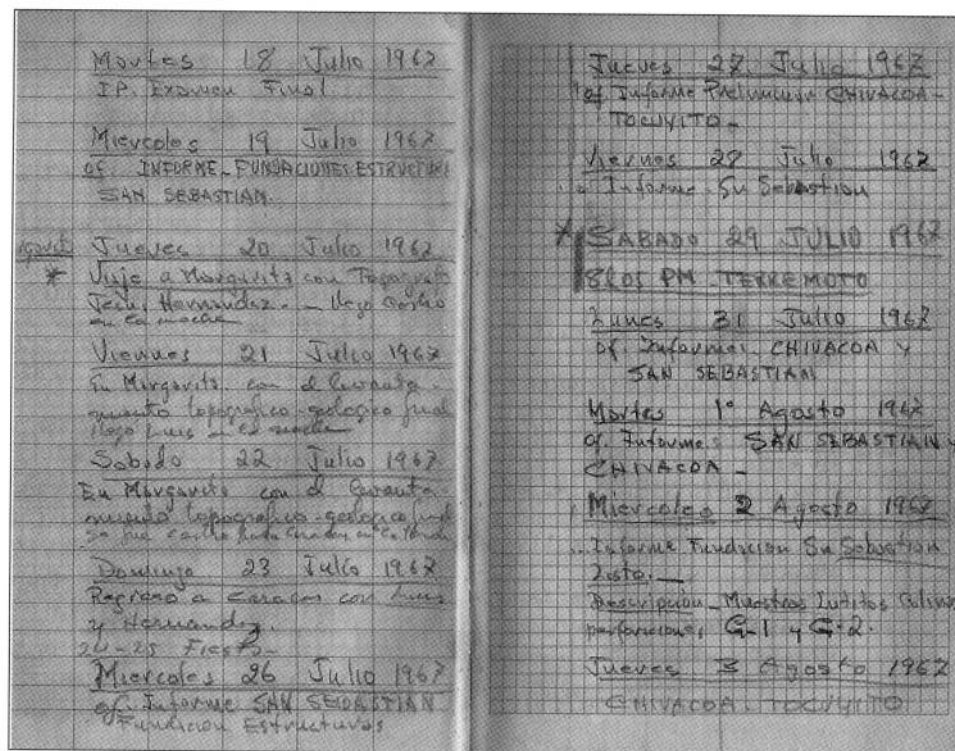 Martes 18 Julio 1967
I.P. Examen Final
Miercoles 19 Julio 1967
of. INFORME FUNDACIONES ESTRUCTURA
SAN SEBASTIAN.
Jueves 20 Julio 1967
* Viaje a Margarita con Topografo
Hernandez. - llego Castro
en la noche
Viernes 21 Julio 1967
En Margarita con el levanta-
miento topografico-geologico final
llego Luis en la noche
Sabado 22 Julio 1967
En Margarita con el levanta-
miento topografico-geologico final
se fue Castro
Domingo 23 Julio 1967
Regreso a Caracas con Luis
y Hernandez.
24-25 Fiesta-
Miercoles 26 Julio 1967
of. Informe SAN SEBASTIAN
Fundicion Estructuras
Jueves 27 Julio 1967
of Informe Preliminar CHIVACOA-
TOCUYITO-
Viernes 28 Julio 1967
Informe Sn Sebastian
* SABADO 29 JULIO 1967
8:05 PM - TERREMOTO
Lunes 31 Julio 1967
of. Informes CHIVACOA Y
SAN SEBASTIAN
Martes 1º Agosto 1967
of. Informes SAN SEBASTIAN y
CHIVACOA-
Miercoles 2 Agosto 1967
Informe Fundicion Sn Sebastian
Listo.
Descripcion - Muestras
perforaciones G-1 y G-2.
Jueves 3 Agosto 1967
CHIVACOA-TOCUYITO